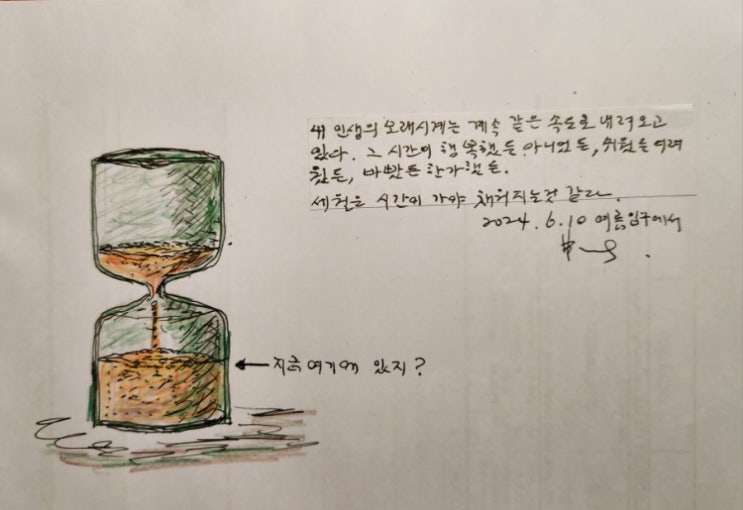 내 인생의 모래시계는 계속 같은 속도로 내려오고
있다. 그 시간이 행복했든 아니었든, 쉬웠든 어려
웠든, 바빴든 한가했든.
세월은 시간이 가야 채워지는것 같다.
2024. 6. 10 여름입구에서
지금 여기에 있지?